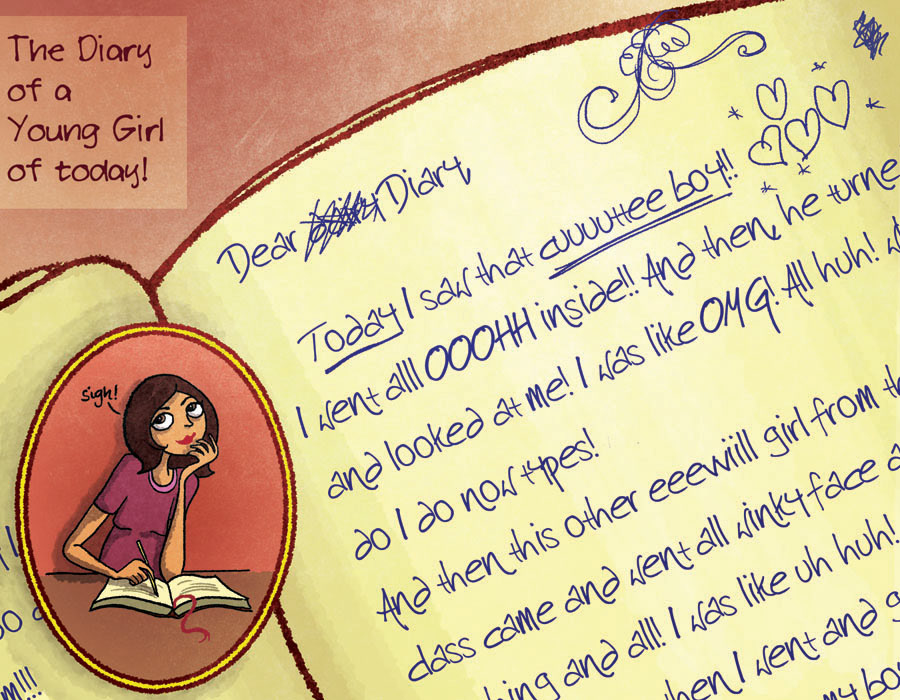 The Diary
of a
Young Girl
of today!
Dear Diary,
Today I saw that cuuuttee boy!!
I went alll OOOHH inside!! And then, he turne
and looked at me! I was like OMG! All huh! w
do I do now types!
And then this other eeewiill girl from th
class came and went all winky face a
hing and all! I was like uh huh!
then I went and g
my bo
sigh!
m!!!